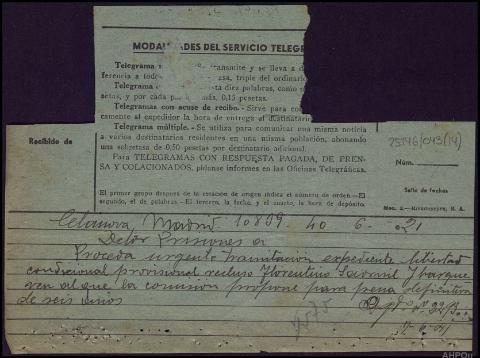 MODALIDADES DEL SERVICIO TELEGR
Telegrama transmite y se lleva a d
ferencia a todos sa, triple del ordinario
Telegrama esta diez palabras, como
setas, y por cada más, 0,15 pesetas.
Telegramas con acuse de recibo.-Sirve para co
camente al expedidor la hora de entrega al destinatari
Telegrama múltiple.-Se utiliza para comunicar una misma noticia
a varios destinatarios residentes en una misma población, abonando
una sobretasa de 0,50 pesetas por destinatario adicional.
Para TELEGRAMAS CON RESPUESTA PAGADA, DE PREN-
SA Y COLACIONADOS, pídanse informes en las Oficinas Telegráficas.
El primer grupo después de la estación de origen indica el número de orden.-El
segundo, el de palabras.-El tercero, la fecha, y el cuarto, la hora de depósito.
Recibido de
25146/043(14)
Núm.
Sello de fechas
Mod. 2.-Rivadeneyra, S. A.
Celanova, Madrid 10859 40 6 21
Prisiones a
Proceda urgente tramitación expediente libertad
condicional provisional recluso Florentino
ren al que la comisión propone para pena definitiva
de seis años
AHPOu